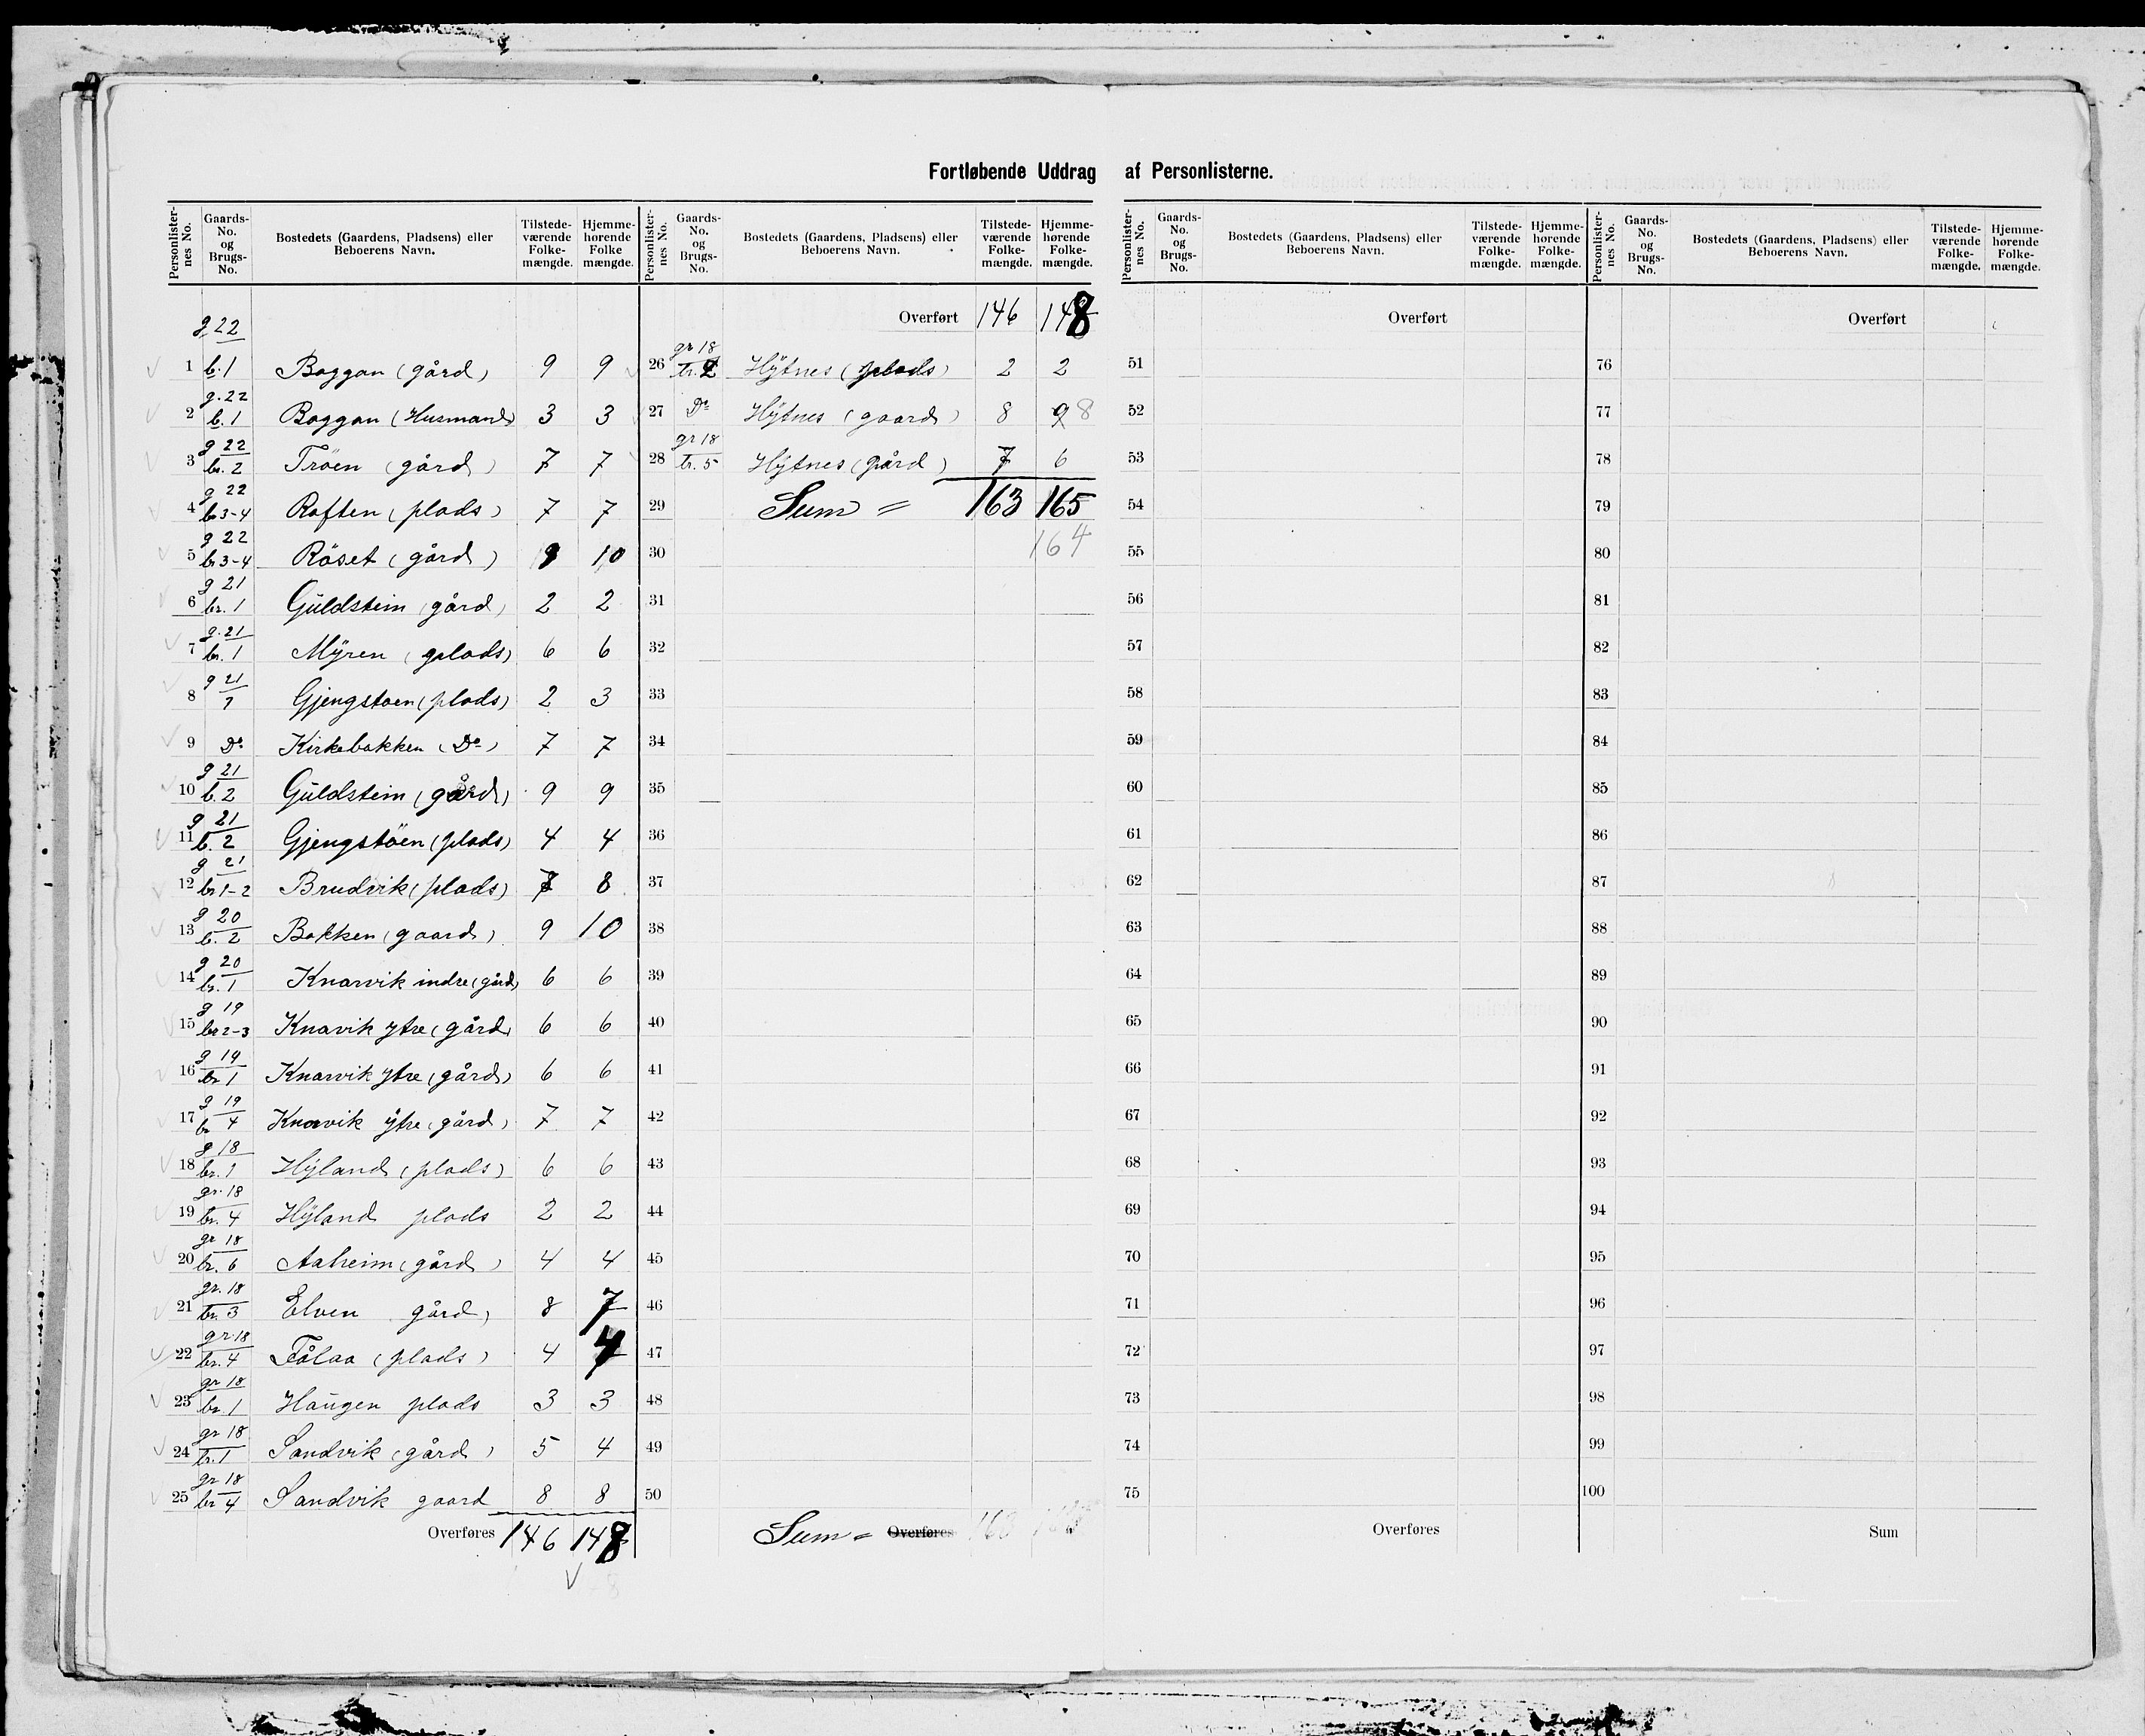 Fortløbende Uddrag af Personlisterne.
Personlister-nes No. Gaards-No. og Brugs-No. Bostedets (Gaardens, Pladsens) eller Beboerens Navn. Tilstede-værende Folke-mængde. Hjemme-hørende Folke mængde.
g. 22
1 b. 1 Boggan (gård) 9 9
g. 22
2 b. 1 Boggan (Husmand) 3 3
g 22
3 br. 2 Tröen (gård) 7 7
g 22
4 br 3-4 Roften (plads) 7 7
g 22
5 br 3-4 Röset (gård) 8 10
g 21
6 br. 1 Guldstein (gård) 2 2
g. 21
7 br. 1 Myren (plads) 6 6
g 21
8 1 Gjengstoen (plads) 2 3
9 Do Kirkebakken (Do) 7 7
g 21
10 b. 2 Guldstein (gård) 9 9
g 21
11 b. 2 Gjengstöen (plads) 4 4
g 21
12 br 1-2 Brudvik (plads) 7 8
g 20
13 b. 2 Bakken (gaard) 9 10
g 20
14 br. 1 Knarvik indre (gård) 6 6
g 19
15 br 2-3 Knavik ytre (gård) 6 6
g 19
16 br 1 Knarvik ytre (gård) 6 6
g 19
17 br 4 Knarvik ytre (gård) 7 7
g 18
18 br. 1 Hyland (plads) 6 6
gr. 18
19 br. 4 Hyland plads 2 2
gr 18
20 br. 6 Aaheim (gård) 4 4
gr. 18
21 br. 3 Elven gård) 8 7
gr. 18
22 br. 4 Fålaa (plads) 4 4
gr 18
23 br 1 Haugen plads 3 3
gr 18
24 br. 1 Sandvik (gård) 5 4
gr 18
25 br 4 Sandvik gaard 8 8
Overføres 146 148
Personlister-nes No. Gaards-No. og Brugs-No. Bostedets (Gaardens, Pladsens) eller Beboerens Navn. Tilstede-værende Folke-mængde. Hjemme-hørende Folke-mængde.
Overført 146 148
gr 18
26 br. 2 Hytnes (plads) 2 2
27 Do Hytnes (gaard) 8 9 8
gr 18
28 br. 5 Hytnes (gård) 7 6
29 Sum = 163 165
30 164
31
32
33
34
35
36
37
38
39
40
41
42
43
44
45
46
47
48
49
50
Sum = Overføres 163
Personlister-nes No. Gaards-No. og Brugs-No. Bostedets (Gaardens, Pladsens) eller Beboerens Navn. Tilstede-værende Folke-mængde. Hjemme-hørende Folke-mængde.
Overført
51
52
53
54
55
56
57
58
59
60
61
62
63
64
65
66
67
68
69
70
71
72
73
74
75
Overføres
Personlister-nes No. Gaards-No. og Brugs-No. Bostedets (Gaardens, Pladsens) eller Beboerens Navn. Tilstede-værende Folke-mængde. Hjemme-hørende Folke-mængde.
Overført
76
77
78
79
80
81
82
83
84
85
86
87
88
89
90
91
92
93
94
95
96
97
98
99
100
Sum